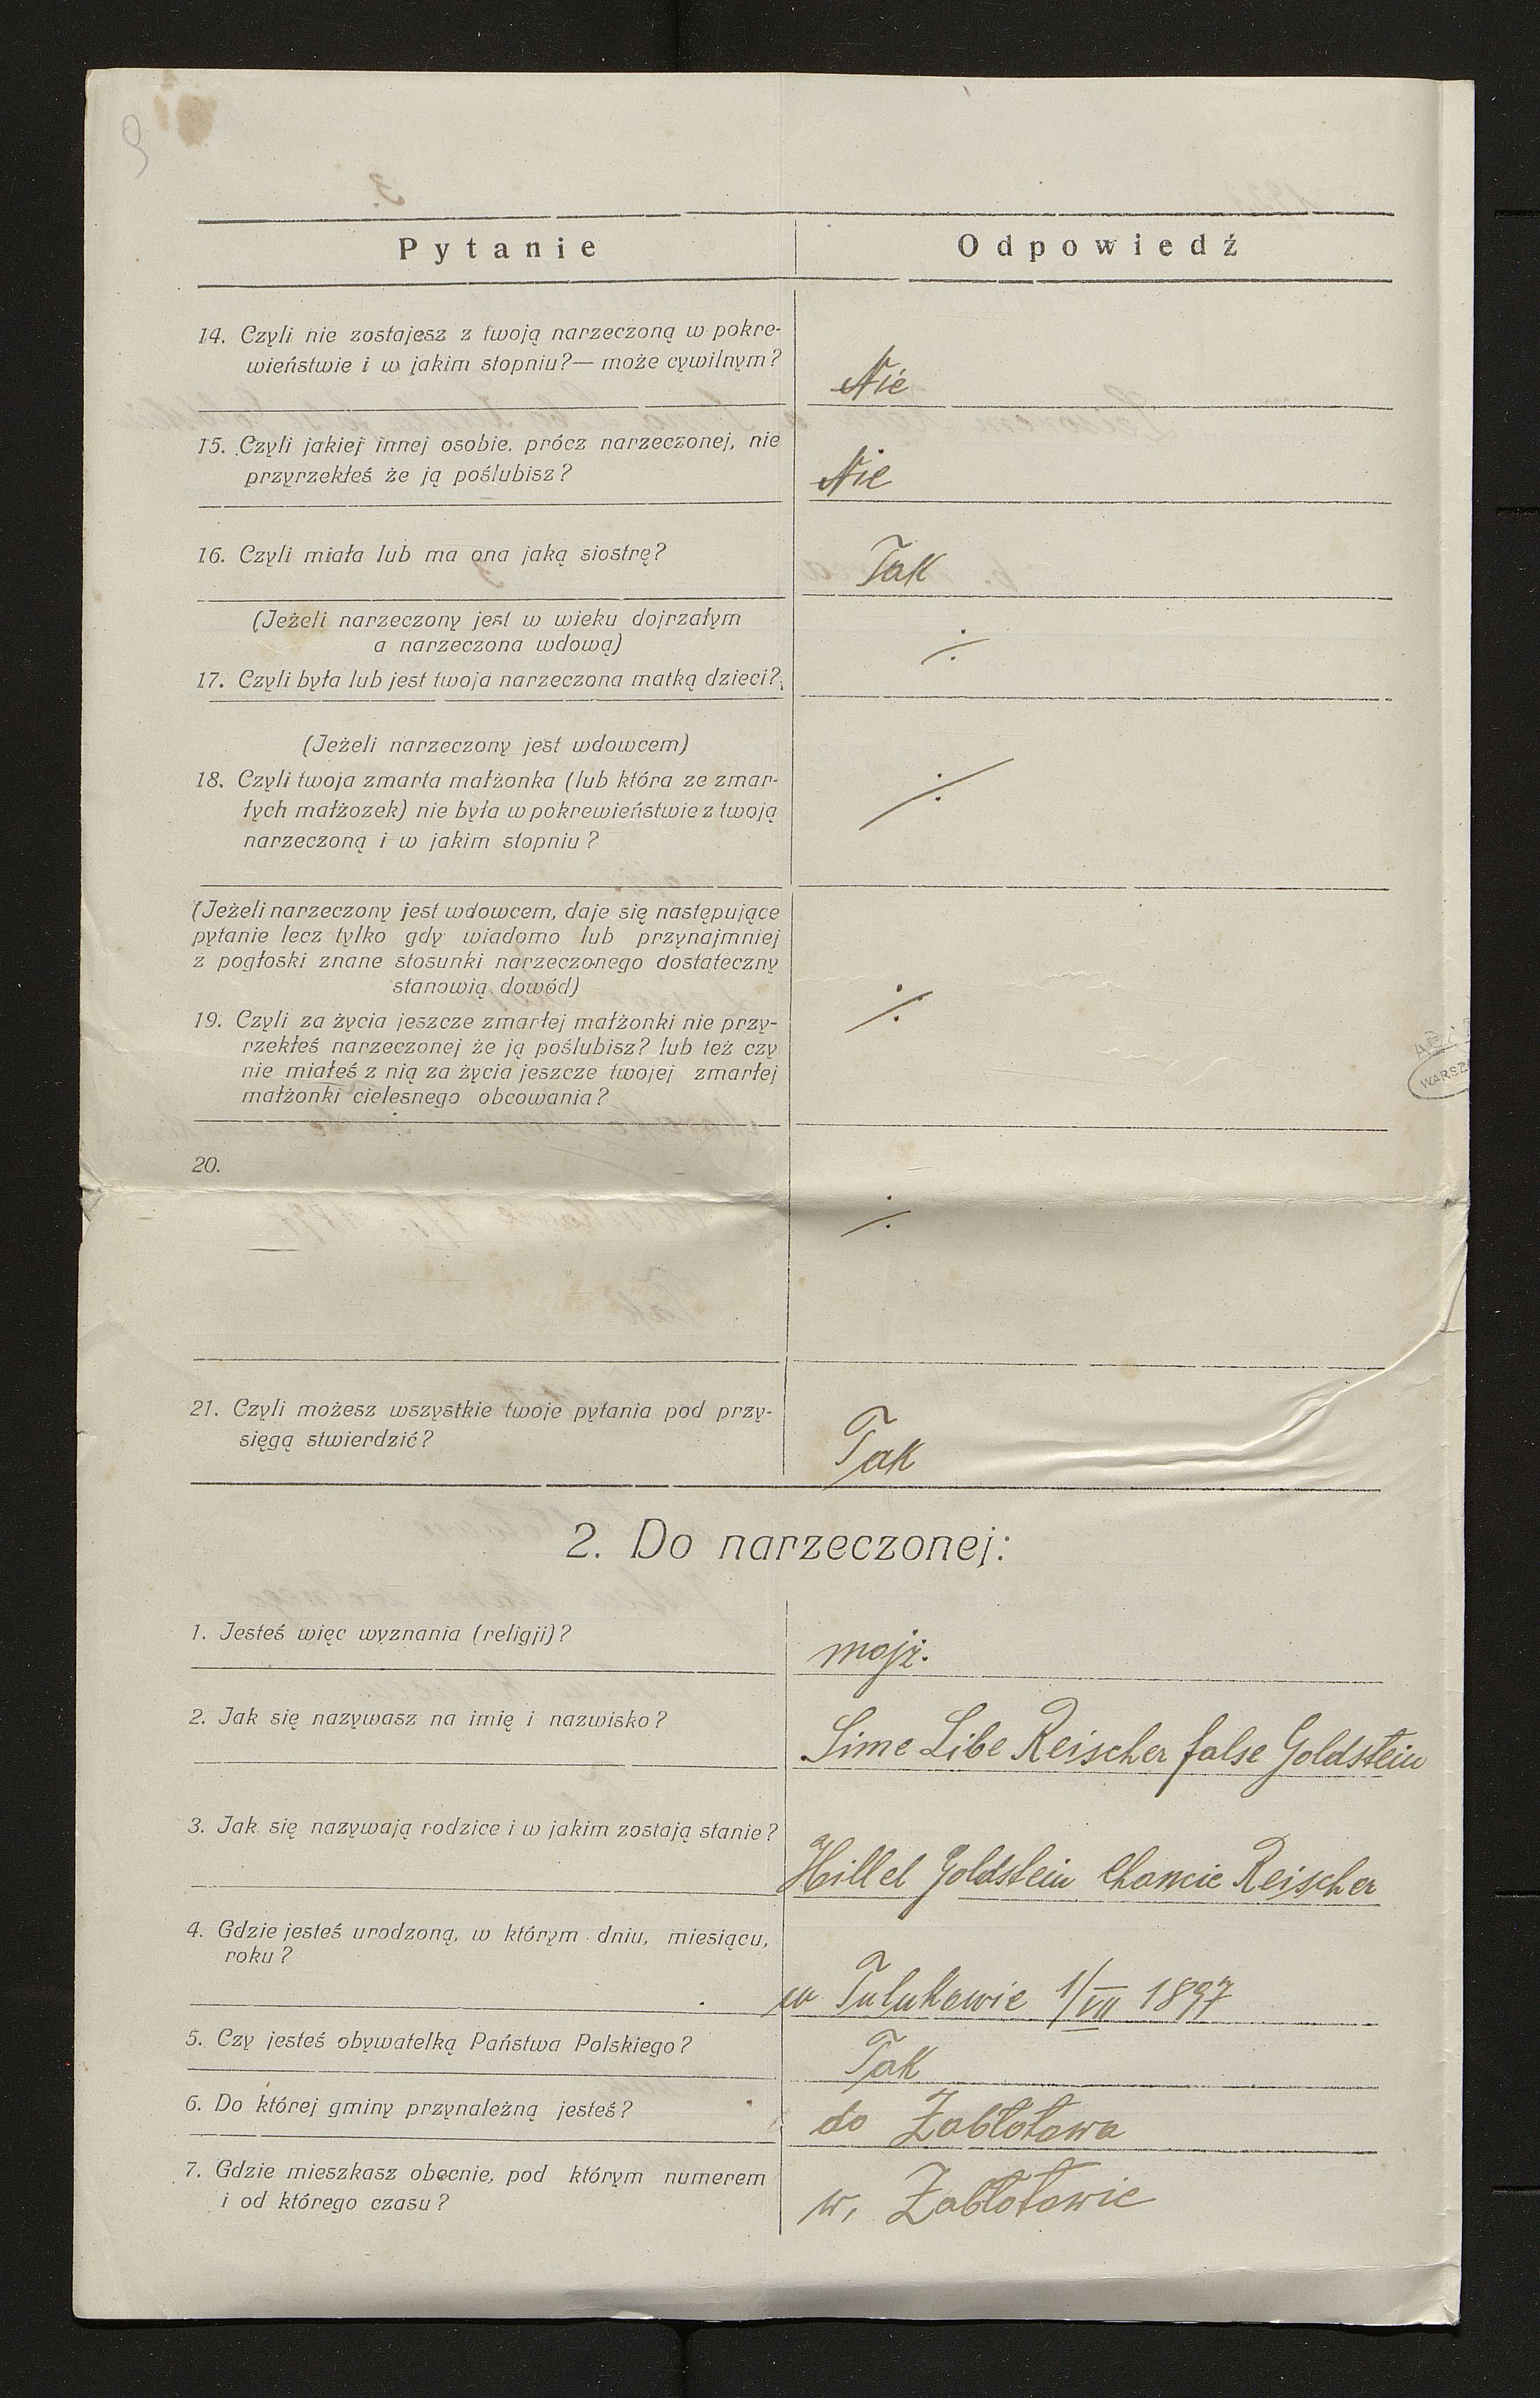 9
Pytanie
Odpowiedź
14. Czyli nie zostajesz z twoją narzeczoną w pokre-
wieństwie i w jakim stopniu?— może cywilnym?
Nie
15. Czyli jakiej innej osobie, prócz narzeczonej, nie
przyrzekłeś że ją poślubisz?
Nie
16. Czyli miała lub ma ona jaką siostrę?
Tak
(Jeżeli narzeczony jest w wieku dojrzałym
a narzeczona wdową)
17. Czyli była lub jest twoja narzeczona matką dzieci?
⁒
(Jeżeli narzeczony jest wdowcem)
18. Czyli twoja zmarta małżonka (lub która ze zmar-
łych małżozek) nie była w pokrewieństwie z twoją
narzeczoną i w jakim stopniu?
⁒
(Jeżeli narzeczony jest wdowcem, daje się następujące
pytanie lecz tylko gdy wiadomo lub przynajmniej
z pogłoski znane stosunki narzeczonego dostateczny
stanowią dowód)
19. Czyli za życia jeszcze zmarłej małżonki nie przy-
rzekłeś narzeczonej że ją poślubisz? lub też czy
nie miałeś z nią za życia jeszcze twojej zmarłej
małżonki cielesnego obcowania?
⁒
20.
⁒
21. Czyli możesz wszystkie twoje pytania pod przy-
sięgą stwierdzić?
Tak
2. Do narzeczonej:
1. Jesteś więc wyznania (religji)?
mojż.
2. Jak się nazywasz na imię i nazwisko?
Sime Libe Reischer false Goldstein
3. Jak się nazywają rodzice i w jakim zostają stanie?
Hillel Goldstein Chancie Reischer
4. Gdzie jesteś urodzoną, w którym dniu, miesiącu,
roku?
w Tulukowie 1/VII 1897
5. Czy jesteś obywatelką Państwa Polskiego?
Tak
6. Do której gminy przynależną jesteś?
do Zabłotowa
7. Gdzie mieszkasz obecnie, pod którym numerem
i od którego czasu?
w, Zabłotowie